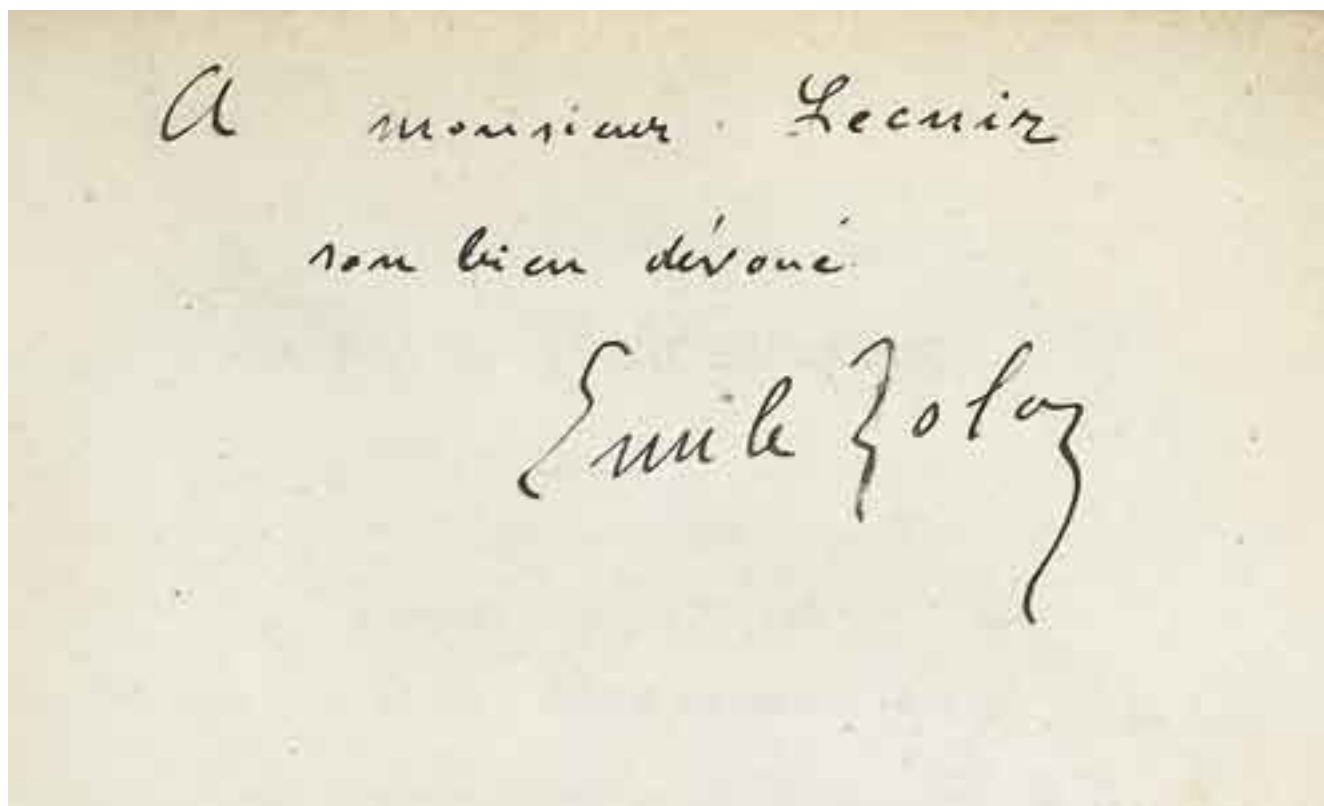 A monsieur Lecuir
son bien dévoué
Emile Zola